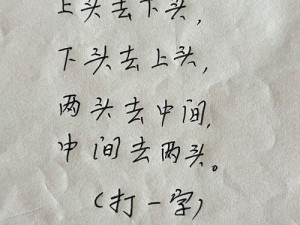 上头去下头,
下头去上头,
两头去中间,
中间去两头。
(打一字)